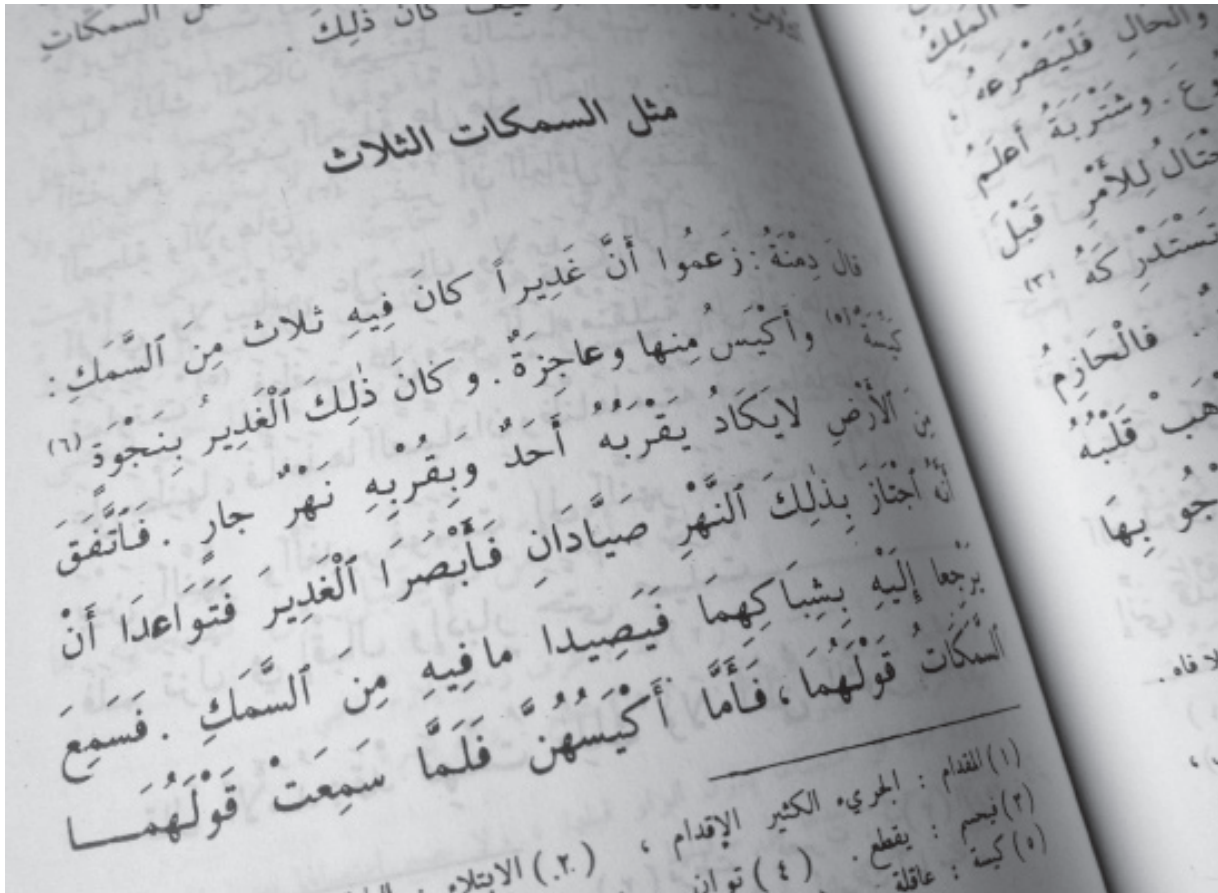 السمكات
كيف كان ذلك .
مثل السمكات الثلاث
قالَ دِمْنَةُ : زَعَمُوا أَنَّ غَدِيراً كانَ فِيهِ ثلاث مِنَ ٱلسَّمَكِ :
كَيِّسَةٌ (٥) وأَكْيَسُ مِنها وعاجِزَةٌ . وكانَ ذٰلِكَ ٱلْغَدِيرُ بِنَجْوَةٍ (٦)
مِنَ ٱلْأَرْضِ لايَكادُ يَقْرَبُهُ أَحَدٌ وَبِقُرْبِهِ نَهْرٌ جارٍ . فَٱتَّفَقَ
أَنَّهُ ٱجْتازَ بِذٰلِكَ ٱلنَّهْرِ صَيَّادَانِ فَأَبْصَرَا ٱلْغَدِيرَ فَتَوَاعدَا أَنْ
يَرْجِعا إِلَيْهِ بِشِبَاكِهِمَا فَيَصِيدا مافِيهِ مِنَ ٱلسَّمَكِ . فَسَمِعَ
السَّمَكَاتُ قَوْلَهُمَا ، فَأَمَّا أَكْيَسُهُنَّ فَلَمَّا سَمِعَتْ قَوْلَهُمَـــا
(١) المقدام : الجريء الكثير الإقدام ، (٢) الابتلاء :
(٣) يحسم : يقطع . (٤) توان
(٥) كيسة : عاقلة
الْمَلِكُ
والحالِ فَلْيَصْرَعهُ
وشَتْرَبَةُ أَعلَمُ
لِلأَمْرِ قَبْلَ
تَسْتَدْرِكَهُ (٣)
فالْحازِمُ
قَلْبُهُ
بِها